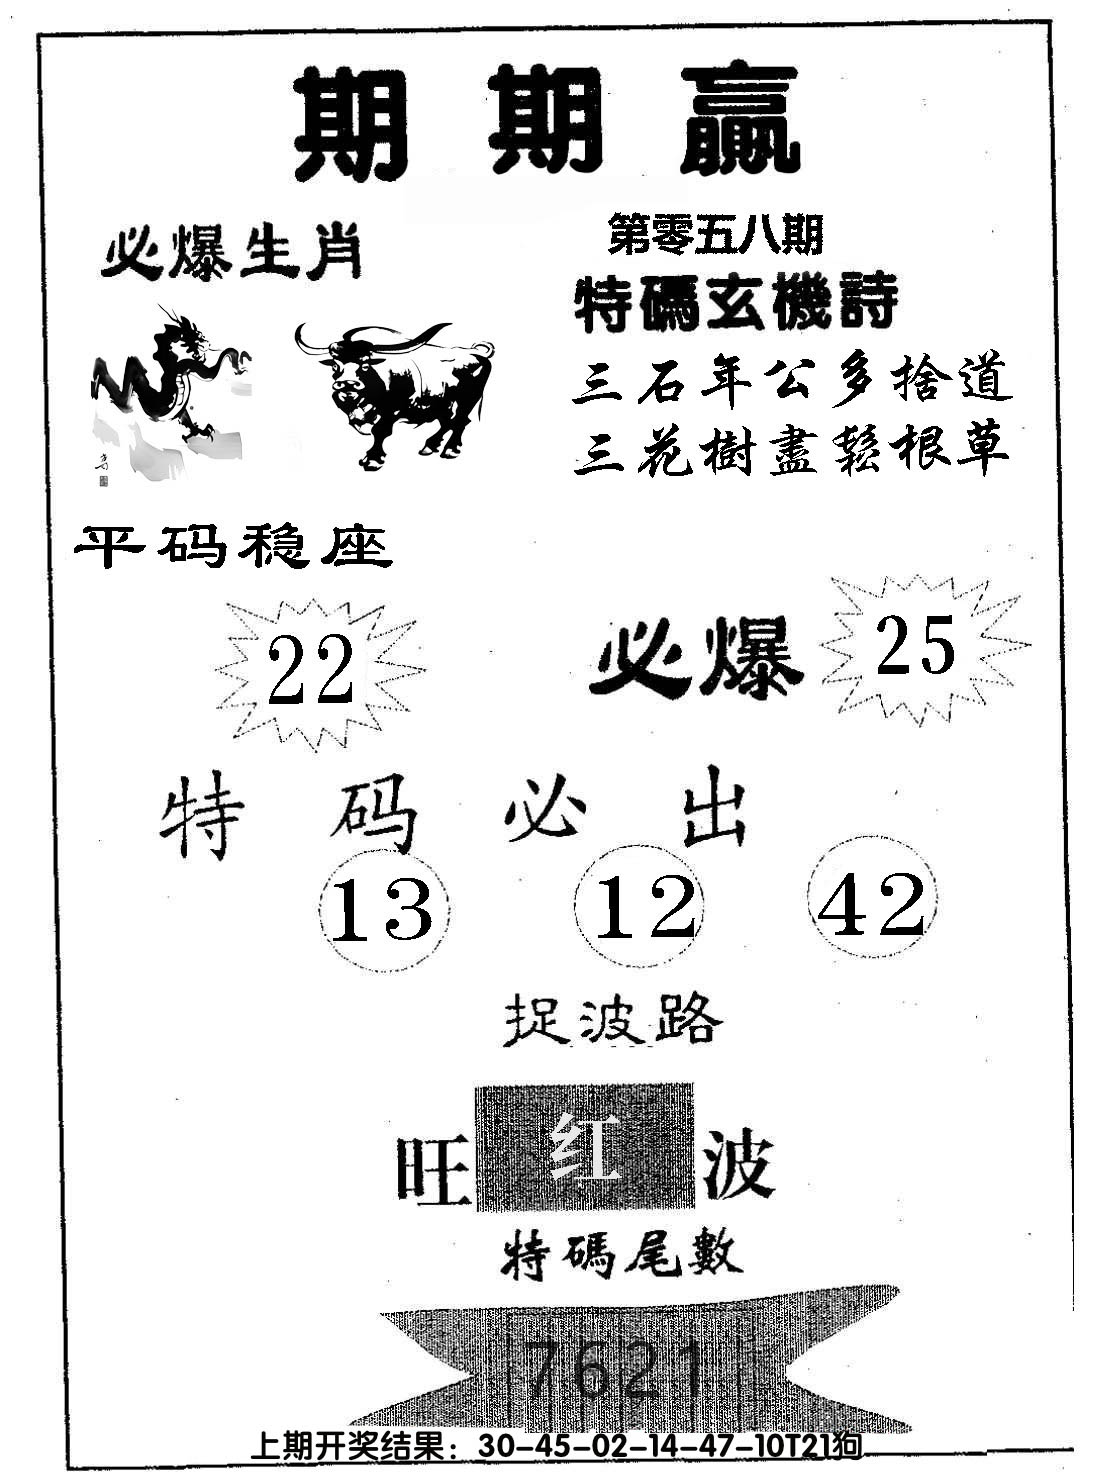 期期赢
必爆生肖
第零五八期
特碼玄機詩
三石年公多捨道
三花樹盡鬆根草
平码稳座
22
必爆
25
特码必出
13 12 42
捉波路
旺红波
特碼尾數
7621
上期开奖结果：30-45-02-14-47-10T21狗